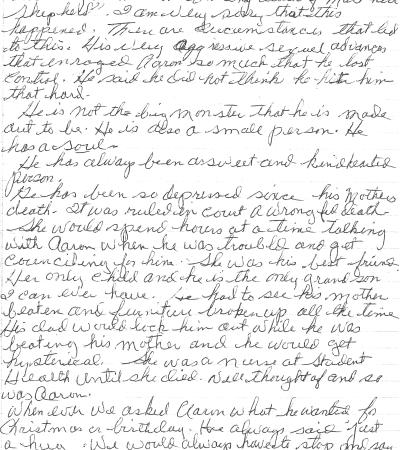 Shepherd". I am very sorry that this
happened. There are circumstances that led
to this. His very aggressive sexual advances
that enraged Aaron so much that he lost
control. He said he did not think he hit him
that hard.
He is not the big monster that he is made
out to be. He is also a small person. He
has a soul.
He has always been a sweet and kind hearted
person.
He has been so depressed since his Mothers
death. It was ruled in court a wrongful death.
She would spend hours at a time talking
with Aaron when he was troubled and get
counciling for him. She was his best friend.
Her only child and he is the only grandson
I can ever have. He had to see his mother
beaten and furniture broken up all the time
His dad would lock him out while he was
beating his mother and he would get
hysterical. She was a nurse at Student
Health until she died. Well thought of and so
was Aaron.
When ever we asked Aaron what he wanted for
Christmas or birthday. He always said just
a hug. We would always have to stop and say